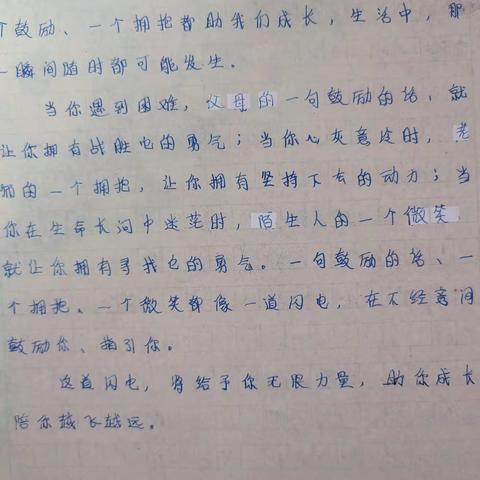 个鼓励、一个拥抱都助我们成长，生活中，那
一瞬间随时都可能发生。
当你遇到困难，父母的一句鼓励的话，就
让你拥有战胜它的勇气；当你心灰意冷时，老
师的一个拥抱，让你拥有坚持下去的动力；当
你在生命长河中迷茫时，陌生人的一个微笑，
就让你拥有寻找它的勇气。一句鼓励的话、一
个拥抱、一个微笑都像一道闪电，在不经意间
鼓励你、指引你。
这道闪电，将给予你无限力量，助你成长
陪你越飞越远。